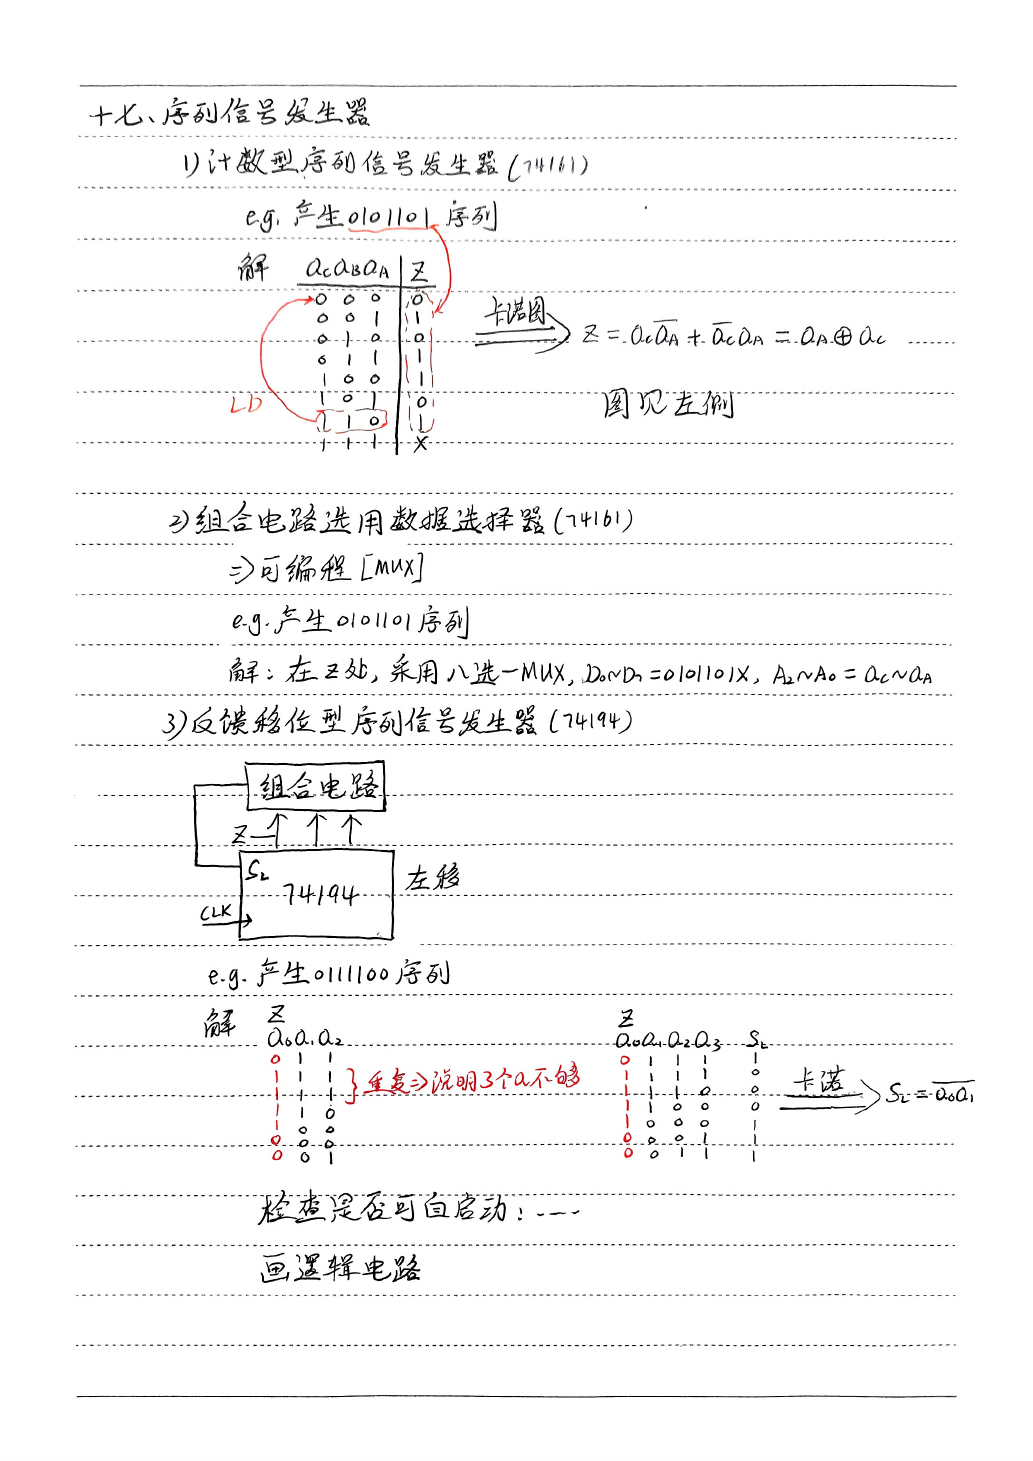 十七、序列信号发生器
1)计数型序列信号发生器(74161)
e.g. 产生0101101序列
解 QcQBQA Z
0 0 0 0
0 0 1 1
0 1 0 0
0 1 1 1
1 0 0 1
1 0 1 0
1 1 0 1
1 1 1 X
LD
卡诺图
Z = Qc\overline{QA} + \overline{Qc}QA = QA⊕Qc
图见左侧
2)组合电路选用数据选择器(74161)
⇒可编程[MUX]
e.g. 产生0101101序列
解：在Z处, 采用八选一MUX, D0~D7=0101101X, A2~A0 = Qc~QA
3)反馈移位型序列信号发生器(74194)
组合电路
Z
SL
74194
CLK
左移
e.g. 产生0111100序列
解 Z
Q0Q1Q2
0 1 1
1 1 1
1 1 1
1 1 0
1 0 0
0 0 0
0 0 1
}重复⇒说明3个Q不够
Z
Q0Q1Q2Q3 SL
0 1 1 1 1
1 1 1 1 0
1 1 1 0 0
1 1 0 0 0
1 0 0 0 1
0 0 0 1 1
0 0 1 1 1
卡诺
SL = \overline{Q0Q1}
检查是否可自启动：----
画逻辑电路